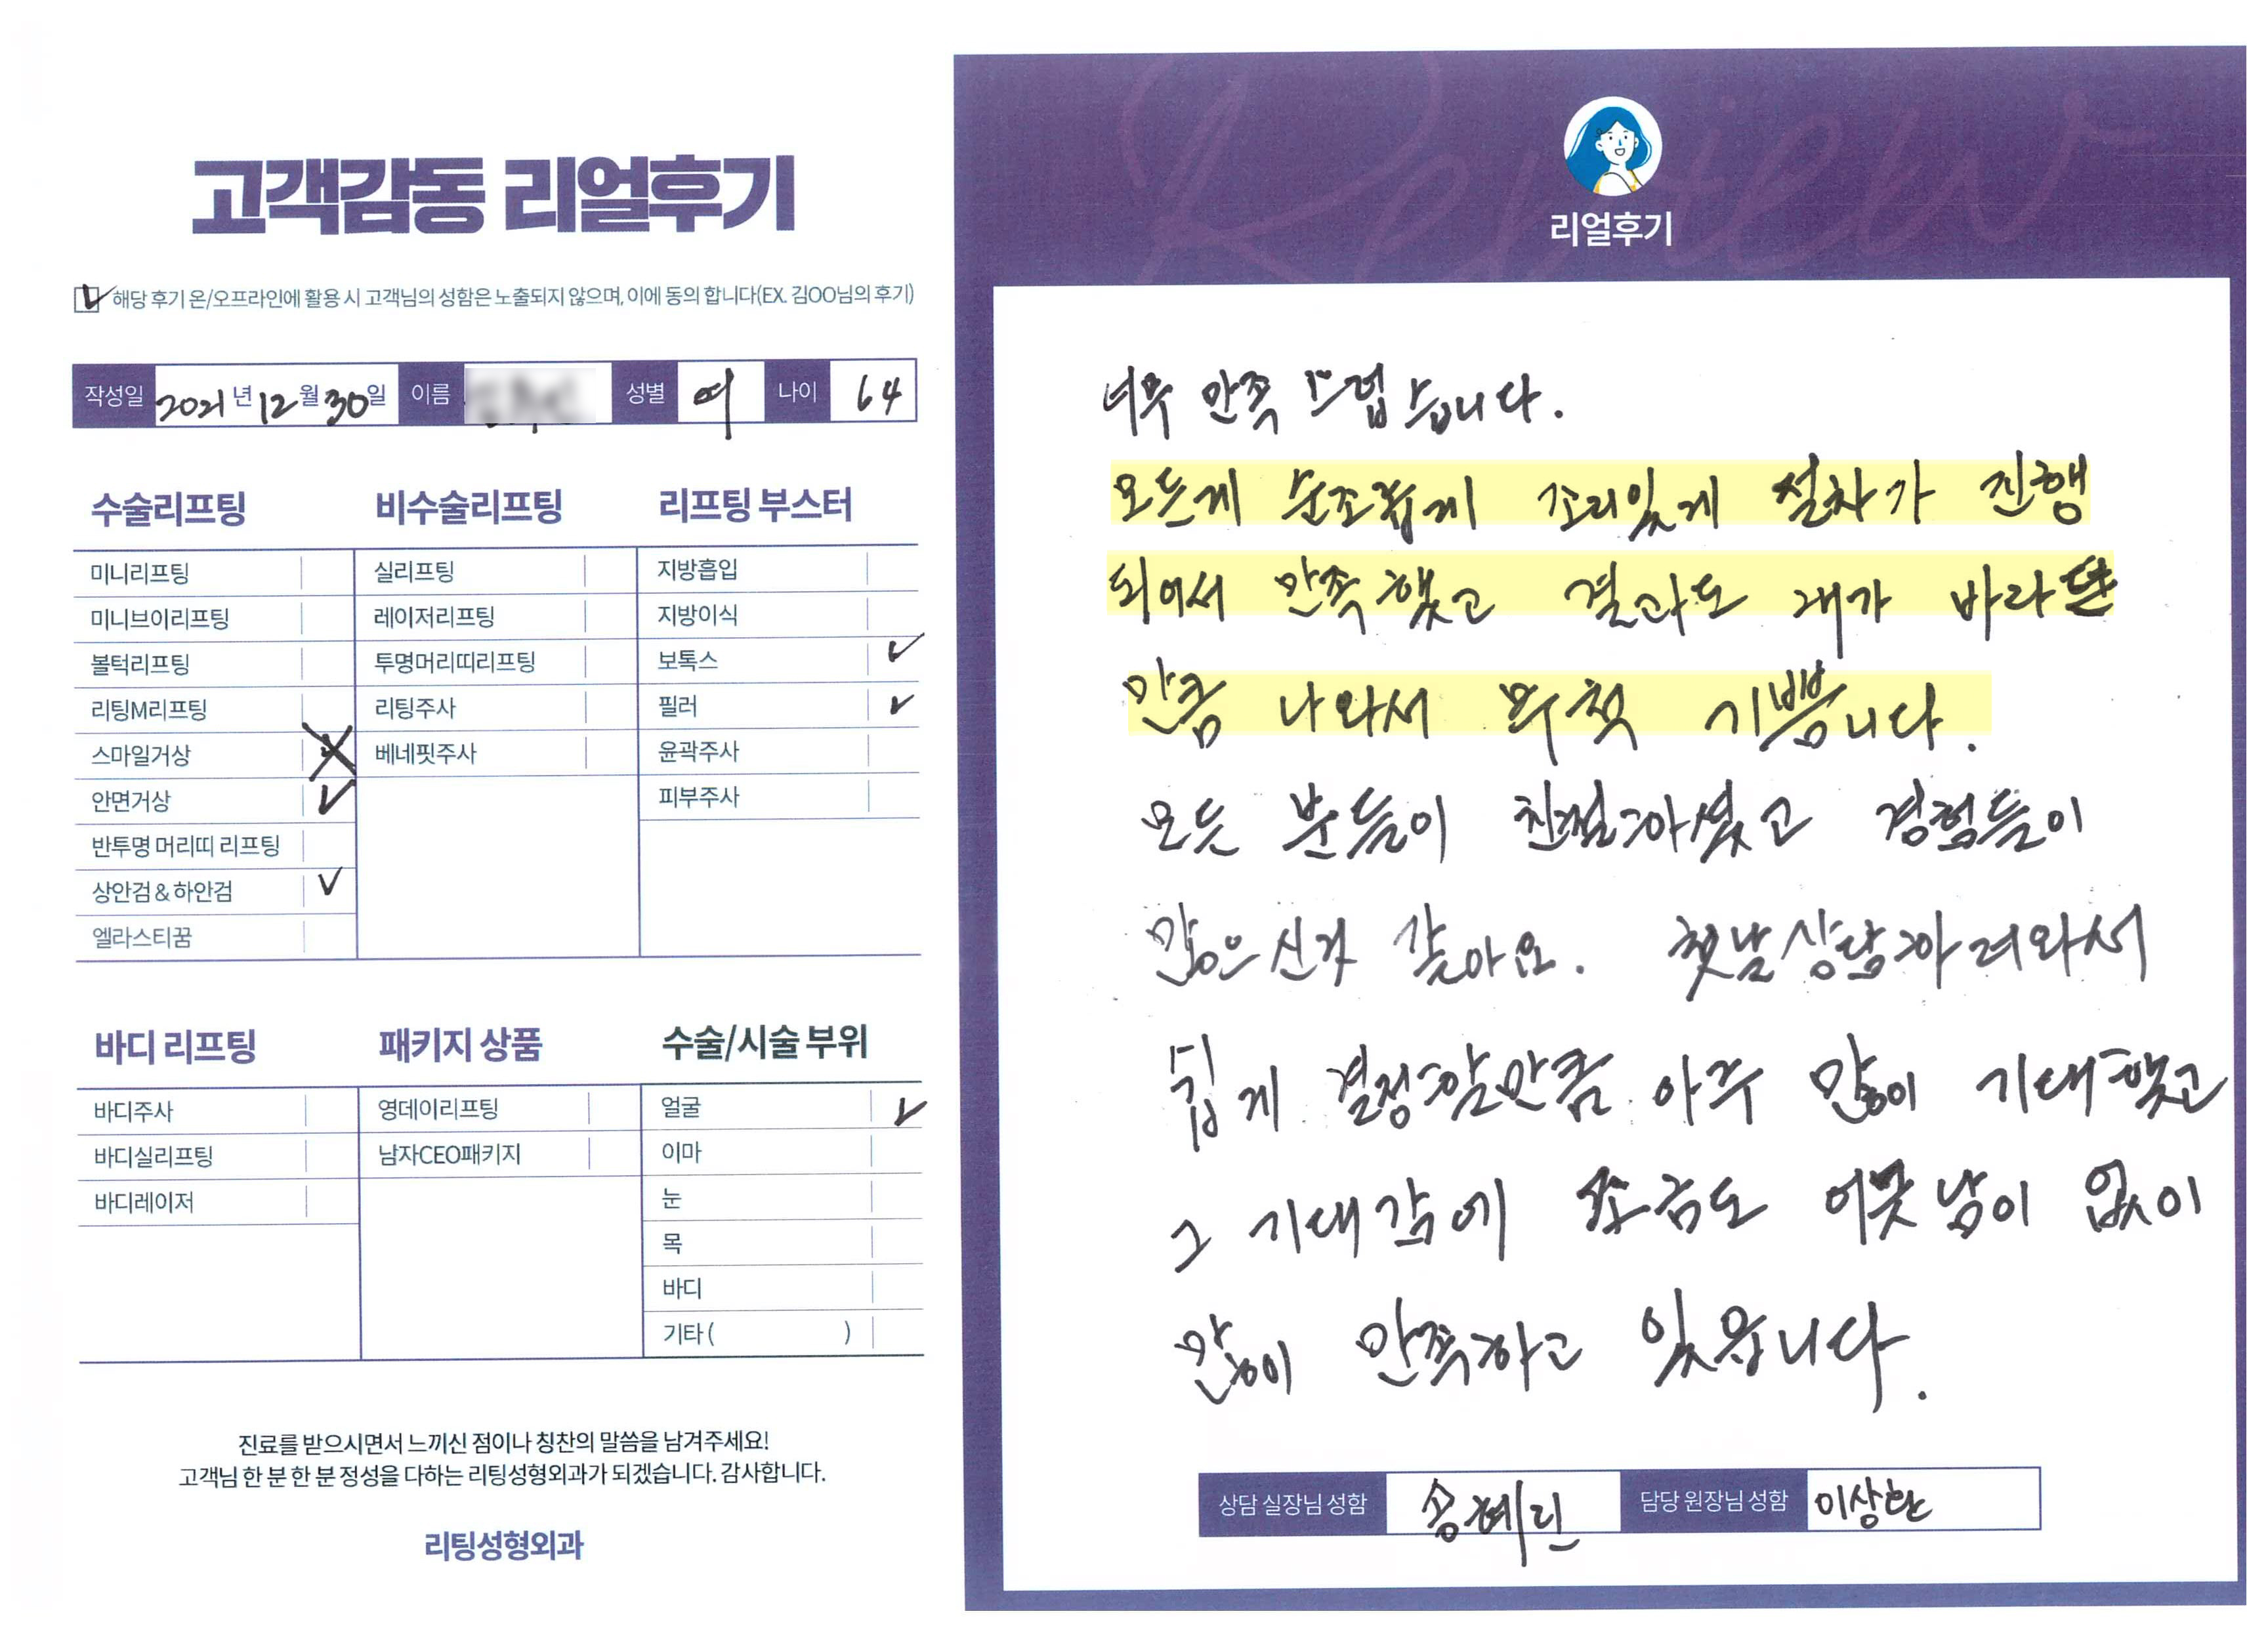 고객감동 리얼후기
해당 후기 온/오프라인에 활용 시 고객님의 성함은 노출되지 않으며, 이에 동의 합니다(EX. 김OO님의 후기)
작성일 2021년 12월 30일 이름 성별 여 나이 64
수술리프팅
미니리프팅
미니브이리프팅
볼턱리프팅
리팅M리프팅
스마일거상
안면거상
반투명 머리띠 리프팅
상안검 & 하안검
엘라스티꿈
비수술리프팅
실리프팅
레이저리프팅
투명머리띠리프팅
리팅주사
베네핏주사
리프팅 부스터
지방흡입
지방이식
보톡스
필러
윤곽주사
피부주사
바디 리프팅
바디주사
바디실리프팅
바디레이저
패키지 상품
영데이리프팅
남자CEO패키지
수술/시술 부위
얼굴
이마
눈
목
바디
기타 ( )
진료를 받으시면서 느끼신 점이나 칭찬의 말씀을 남겨주세요!
고객님 한 분 한 분 정성을 다하는 리팅성형외과가 되겠습니다. 감사합니다.
리팅성형외과
Review
리얼후기
너무 만족 드럽습니다.
모든게 순조롭게 조리있게 절차가 진행
되어서 만족했고 결과도 내가 바라던
만큼 나와서 무척 기쁩니다.
모든 분들이 친절하셨고 경험들이
많으신것 같아요. 첫날 상담하러와서
쉽게 결정할만큼 아주 많이 기대했고
그 기대감에 조금도 어긋남이 없이
많이 만족하고 있읍니다.
상담 실장님 성함 송혜린 담당 원장님 성함 이상환